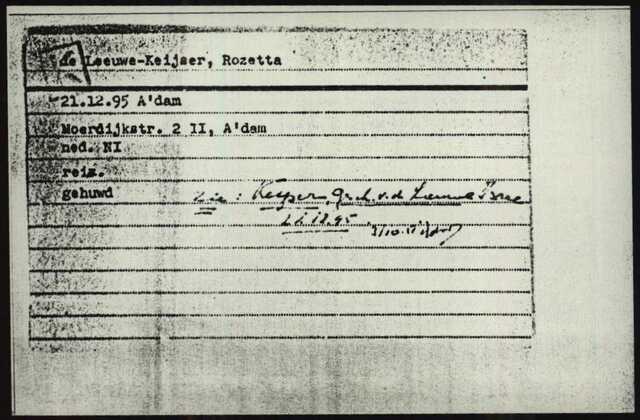 de Leeuwe-Keijser, Rozetta
21.12.95 A'dam
Moerdijkstr. 2 II, A'dam
ned. NI
reiz.
gehuwd
zie: Keyser, v.d.
21.12.95